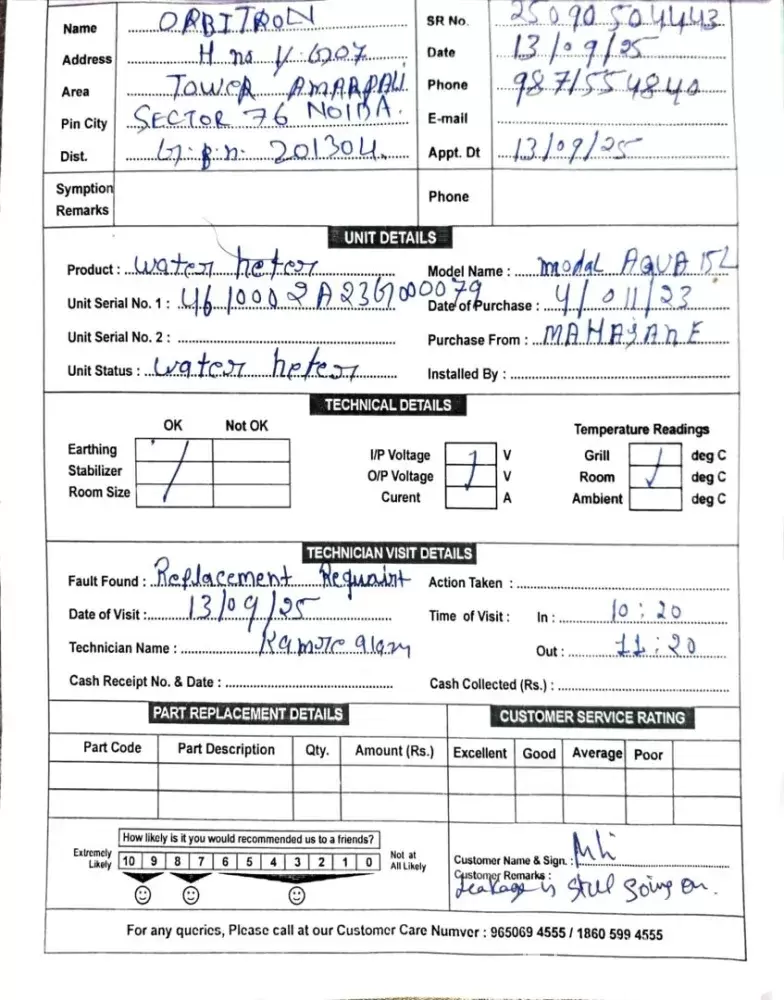 Name ORBITRON SR No. 25090504443
Address H no V-1007 Date 13/09/25
Area Tower AMARPALI Phone 9871554840
Pin City SECTOR 76 NOIDA. E-mail
Dist. G.B.N. 201304 Appt. Dt 13/09/25
Symption Remarks Phone
UNIT DETAILS
Product : water heter Model Name : modal AQUA 15L
Unit Serial No. 1 : Date of Purchase : 4/011/23
Unit Serial No. 2 : Purchase From :
Unit Status : water heter Installed By :
TECHNICAL DETAILS
OK Not OK Temperature Readings
Earthing I/P Voltage V Grill deg C
Stabilizer O/P Voltage V Room deg C
Room Size Curent A Ambient deg C
TECHNICIAN VISIT DETAILS
Fault Found : Replacement Requaint Action Taken :
Date of Visit : 13/09/25 Time of Visit : In : 10:20
Technician Name : Out : 11:20
Cash Receipt No. & Date : Cash Collected (Rs.) :
PART REPLACEMENT DETAILS CUSTOMER SERVICE RATING
Part Code Part Description Qty. Amount (Rs.) Excellent Good Average Poor
How likely is it you would recommended us to a friends?
Extremely Likely 10 9 8 7 6 5 4 3 2 1 0 Not at All Likely
Customer Name & Sign. :
Customer Remarks :
Leakage is still going on.
For any queries, Please call at our Customer Care Numver : 965069 4555 / 1860 599 4555